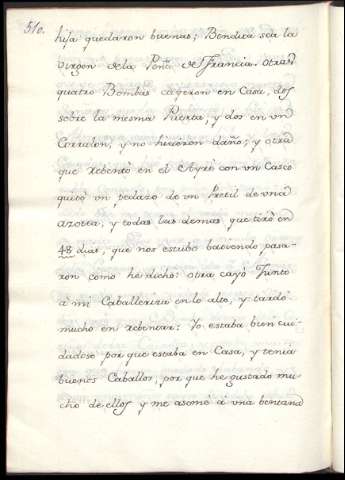 510.
hija quedaron buenas; Bendita sea la
virgen de la Peña de Francia. Otras
quatro Bombas cayeron en Casa, dos
sobre la mesma Puerta, y dos en vn
Corralon, y no hicieron daño; y otra
que rebentò en el Ayre con vn Casco
quitò vn pedazo de vn Pretil de vna
azotea, y todas las demas, que tirò en
48 dias, que nos estubo batiendo pasa-
ron como he dicho: otra cayò Junto
à mi Caballeriza en lo alto, y tardò
mucho en rebentar: Yo estaba bien cui-
dadoso por que estaba en Casa, y tenia
buenos Caballos, por que he gustado mu-
cho de ellos y me asomè à vna bentana